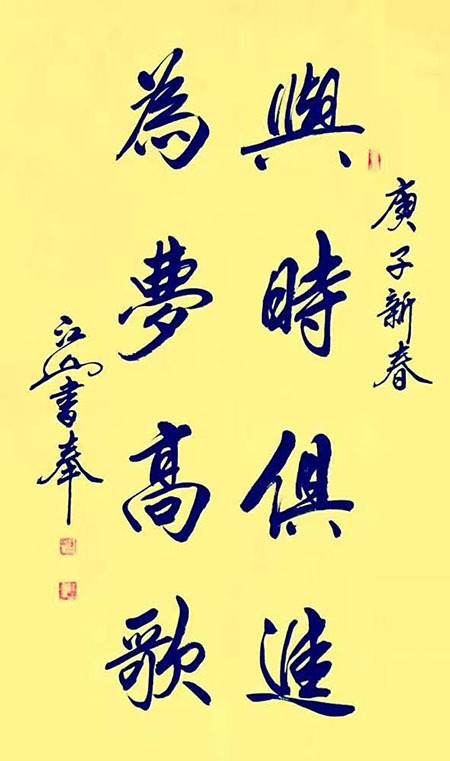 庚子新春
與時俱進
為夢高歌
江山書奉